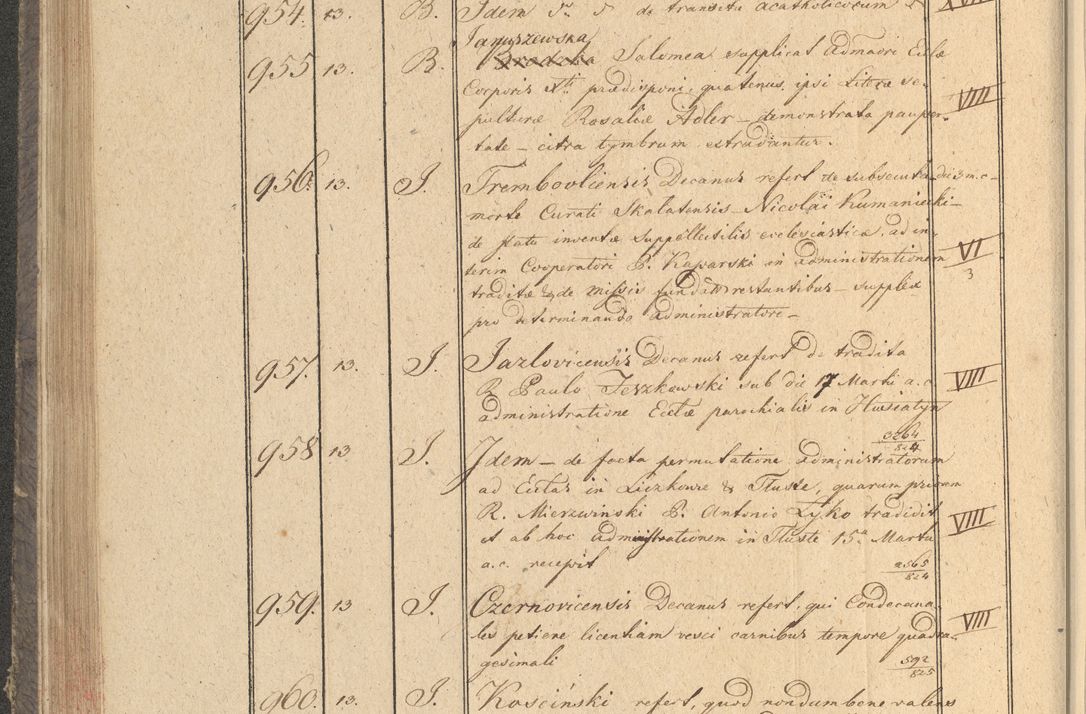 954. 13. B. Idem 5. 5 de transitu acatholicorum
Januszewska
955 13. R. Salomea supplicat admaori Ecclae
Corporis Xti praedisponi, quatenus ipsi Literae se-
pulturae Rosaliae Adler – demonstrata pauper- VIIII
tate – citra tymbrum extradantur.
956. 13. J. Trembovliensis Decanus refert de subsecuta die 3 m. c –
morte Curati Skalatensis – Nicolai Kumaniecki –
de statu inventae suppellectilis ecclesiasticae, ad in-
terim Cooperatori P. Kaparski in administrationem VI
3
traditae & de missis fundatis restantibus – supplex
pro determinando administratori –
957. 13. J. Jazlovicensis Decanus refert de tradita
R. Paulo Jeszkowski sub die 17 Martii a. c. VIII
administratione Ecclae parochialis in Husiatyn
3264
824
958 13 J. Idem – de facta permutatione administratorum
ad Eclas in Liczkowce & Tluste, quarum priorem
R. Mierzwinski P. Antonio Lyko tradidit
et ab hoc administrationem in Tluste 15a Martii VIII
a. c. recepit
2565
824
959. 13 J. Czernovicensis Decanus refert, qui Condecana-
les petiere licentiam vesci carnibus tempore quadra- VIII
gesimali
592
825
960. 13. J. Kosciński refert, quod nondum bene valens